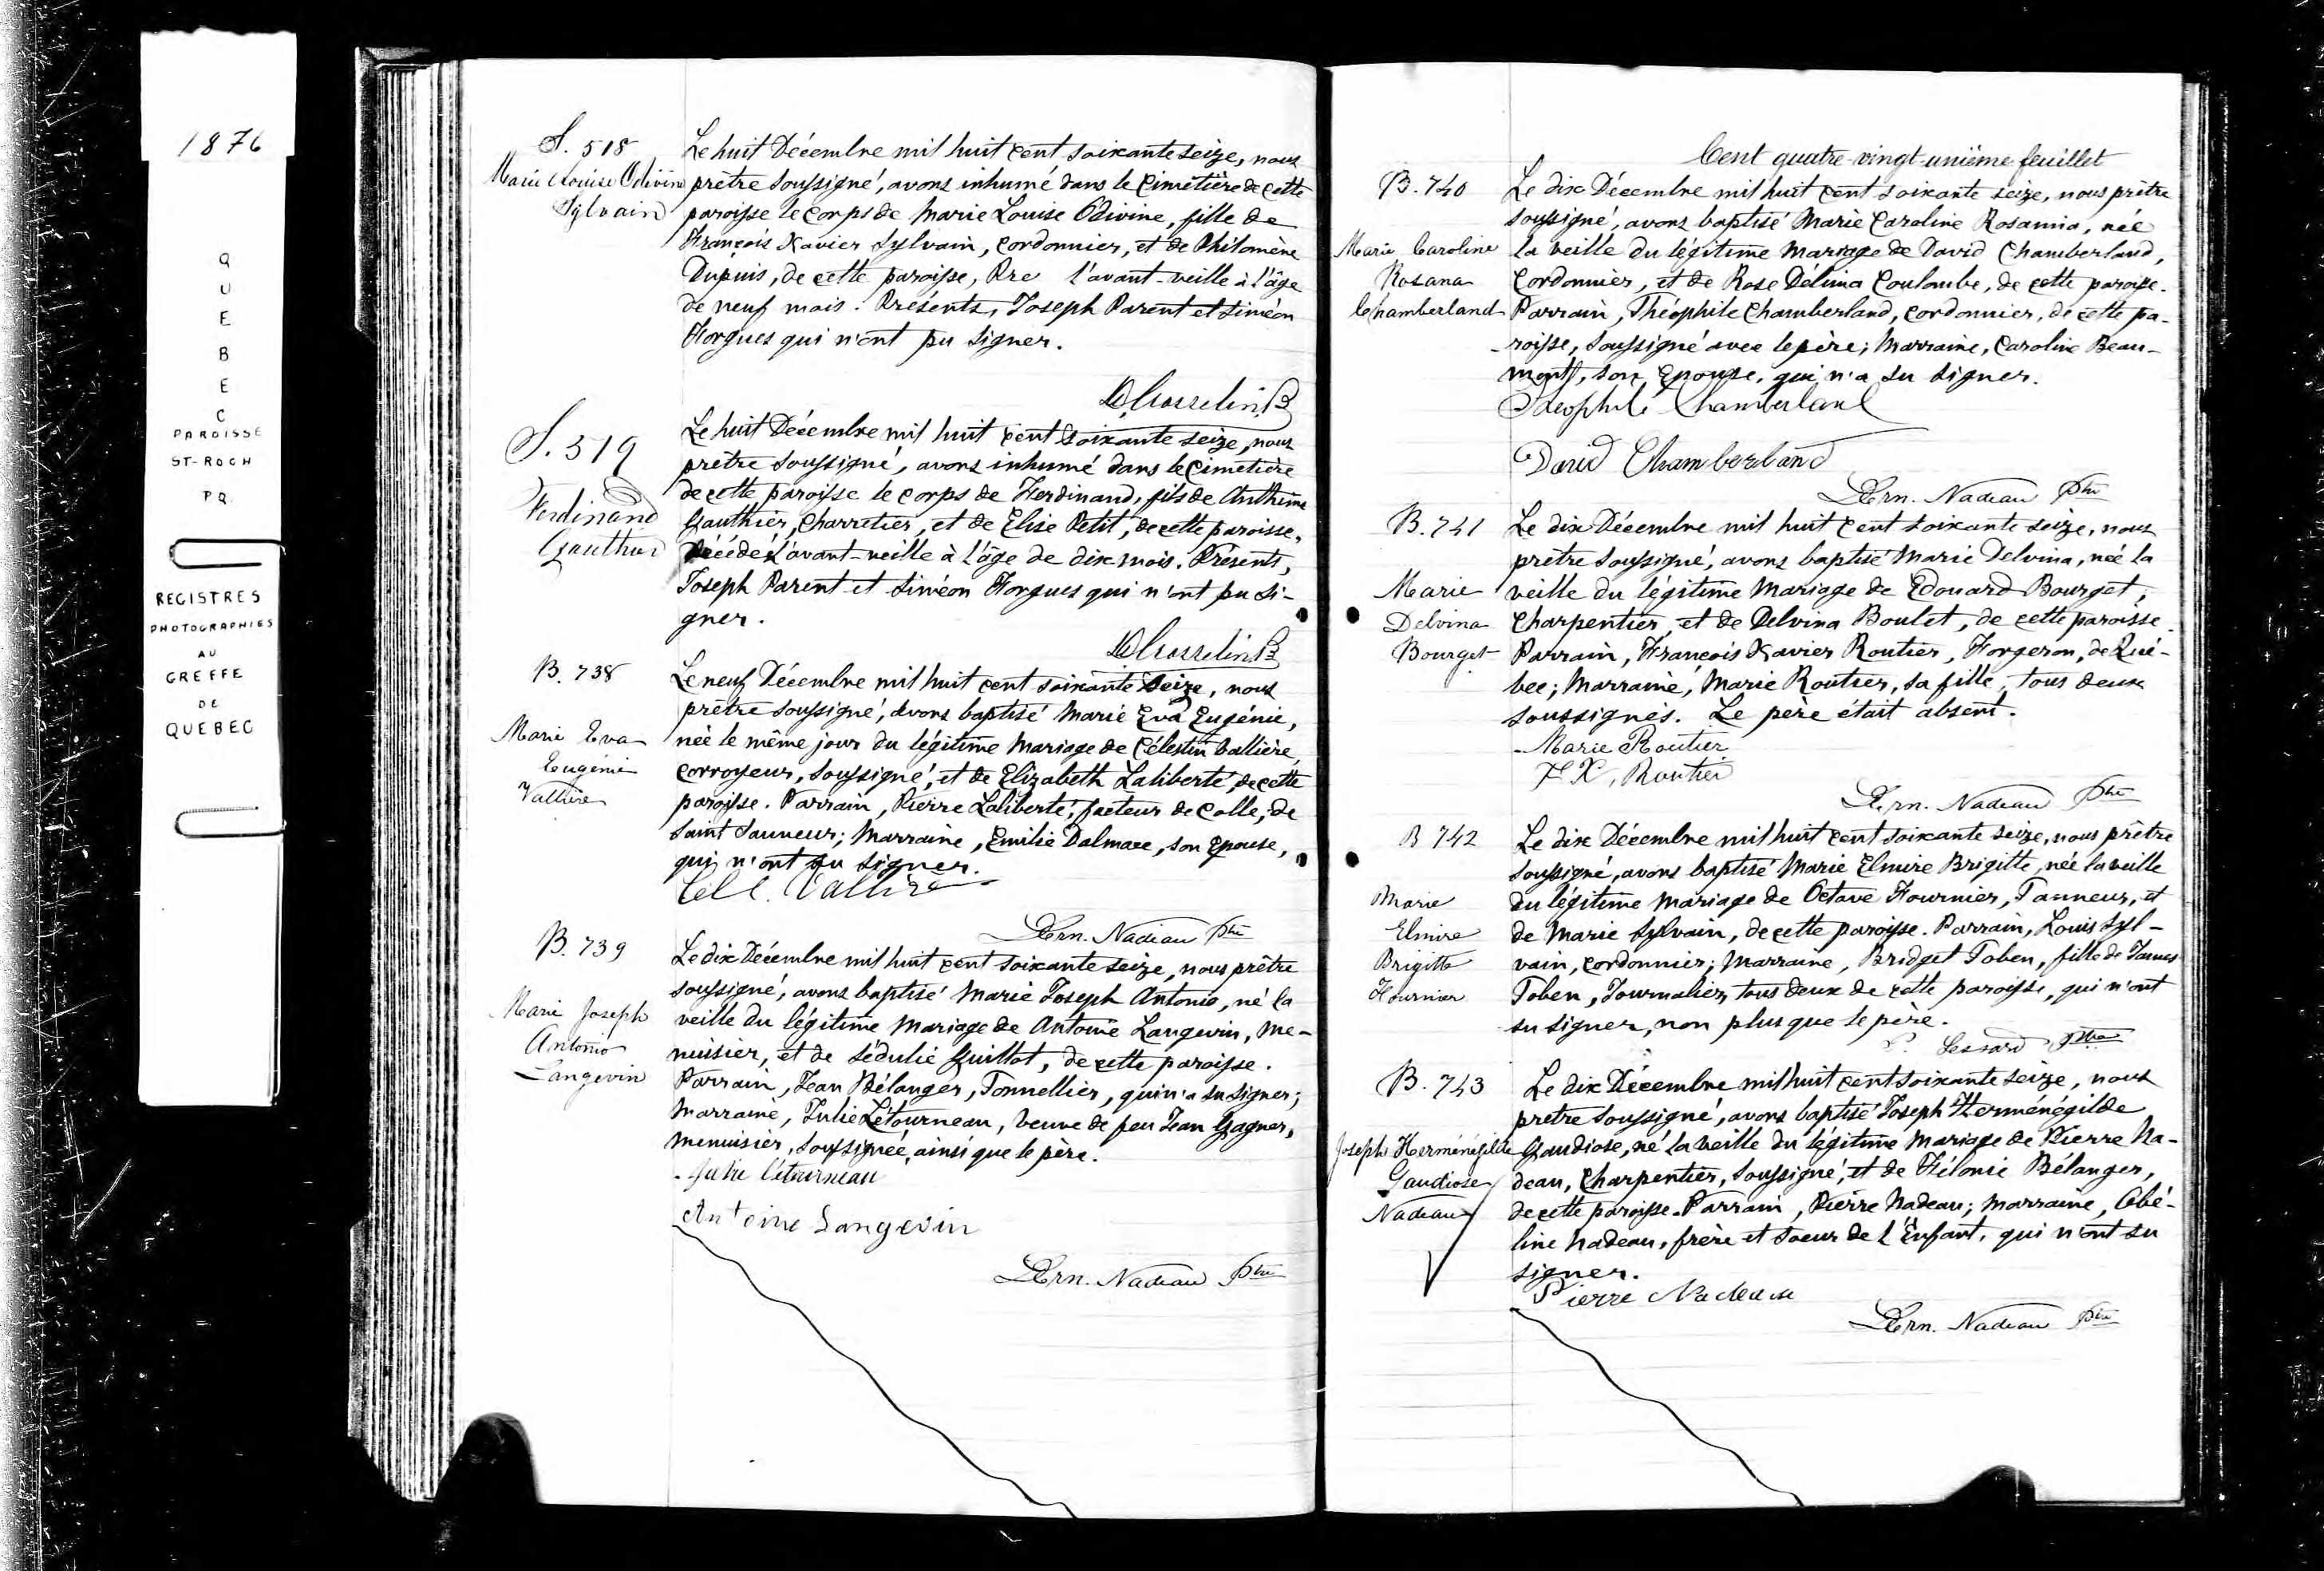 1876
QUEBEC
PAROISSE
ST-ROCH
PQ
REGISTRES
PHOTOGRAPHIES
AU
GREFFE
DE
QUEBEC
S. 518
Marie Louise Odivine
Sylvain
Le huit Décembre mil huit cent soixante seize, nous
prêtre soussigné, avons inhumé dans le Cimetière de cette
paroisse le corps de Marie Louise Odivine, fille de
François Xavier Sylvain, cordonnier, et de Philomène
Dupuis, de cette paroisse, Dre l'avant-veille à l'âge
de neuf mois. Présents, Joseph Parent et Siméon
Forgues qui n'ont pu signer.
D. Gosselin Ptre
S. 519
Ferdinand
Gauthier
Le huit Décembre mil huit cent soixante seize, nous
prêtre soussigné, avons inhumé dans le Cimetière
de cette paroisse le corps de Ferdinand, fils de Anthime
Gauthier, Charretier, et de Elise Petit, de cette paroisse,
Décédé l'avant-veille à l'âge de dix mois. Présents,
Joseph Parent et Siméon Forgues qui n'ont pu si-
gner.
D. Gosselin Ptre
B. 738
Marie Eva
Eugénie
Vallière
Le neuf Décembre mil huit cent soixante seize, nous
prêtre soussigné, avons baptisé Marie Eva Eugénie,
née le même jour du légitime Mariage de Célestin Vallière,
corroyeur, soussigné, et de Elizabeth Laliberté, de cette
paroisse. Parrain, Pierre Laliberté, facteur de Colle, de
Saint Sauveur; Marraine, Emilie Dalmare, son Epouse,
qui n'ont su signer.
Cel C. Vallière
Ern. Nadeau Ptre
B. 739
Marie Joseph
Antonio
Langevin
Le dix Décembre mil huit cent soixante seize, nous prêtre
soussigné, avons baptisé Marie Joseph Antonio, né la
veille du légitime Mariage de Antoine Langevin, Me-
nuisier, et de Sédulie Guillot, de cette paroisse.
Parrain, Jean Bélanger, Tonnellier, qui n'a su signer;
Marraine, Julie Létourneau, veuve de feu Jean Gagner,
Menuisier, soussignée, ainsi que le père.
Julie Létourneau
Antoine Langevin
Ern. Nadeau Ptre
Cent quatre-vingt-unième feuillet
B. 740
Marie Caroline
Rosana
Chamberland
Le dix Décembre mil huit cent soixante seize, nous prêtre
soussigné, avons baptisé Marie Caroline Rosanna, née
la veille du légitime Mariage de David Chamberland,
Cordonnier, et de Rose Délima Coulombe, de cette paroisse.
Parrain, Théophile Chamberland, cordonnier, de cette pa-
-roisse, soussigné avec le père; Marraine, Caroline Beau-
mont, son Epouse, qui n'a su signer.
Théophile Chamberland
David Chamberland
Ern. Nadeau Ptre
B. 741
Marie
Delvina
Bourget
Le dix Décembre mil huit cent soixante seize, nous
prêtre soussigné, avons baptisé Marie Delvina, née la
veille du légitime Mariage de Edouard Bourget,
Charpentier, et de Delvina Boulet, de cette paroisse.
Parrain, François Xavier Routier, Forgeron, de Qué-
bec; Marraine, Marie Routier, sa fille, tous deux
soussignés. Le père était absent.
Marie Routier
F. X. Routier
Ern. Nadeau Ptre
B 742
Marie
Elmire
Brigitte
Fournier
Le dix Décembre mil huit cent soixante seize, nous prêtre
soussigné, avons baptisé Marie Elmire Brigitte, née la veille
du légitime Mariage de Octave Fournier, Tanneur, et
de Marie Sylvain, de cette paroisse. Parrain, Louis Syl-
vain, cordonnier; Marraine, Bridget Toben, fille de James
Toben, Journalier, tous deux de cette paroisse, qui n'ont
su signer, non plus que le père.
Lessard Ptre
B. 743
Joseph Herménégilde
Gaudiose
Nadeau
Le dix Décembre mil huit cent soixante seize, nous
prêtre soussigné, avons baptisé Joseph Herménégilde
Gaudiose, né la veille du légitime Mariage de Pierre Na-
deau, Charpentier, soussigné, et de Hélonie Bélanger,
de cette paroisse. Parrain, Pierre Nadeau; Marraine, Obé-
line Nadeau, frère et soeur de l'Enfant, qui n'ont su
signer.
Pierre Nadeau
Ern. Nadeau Ptre